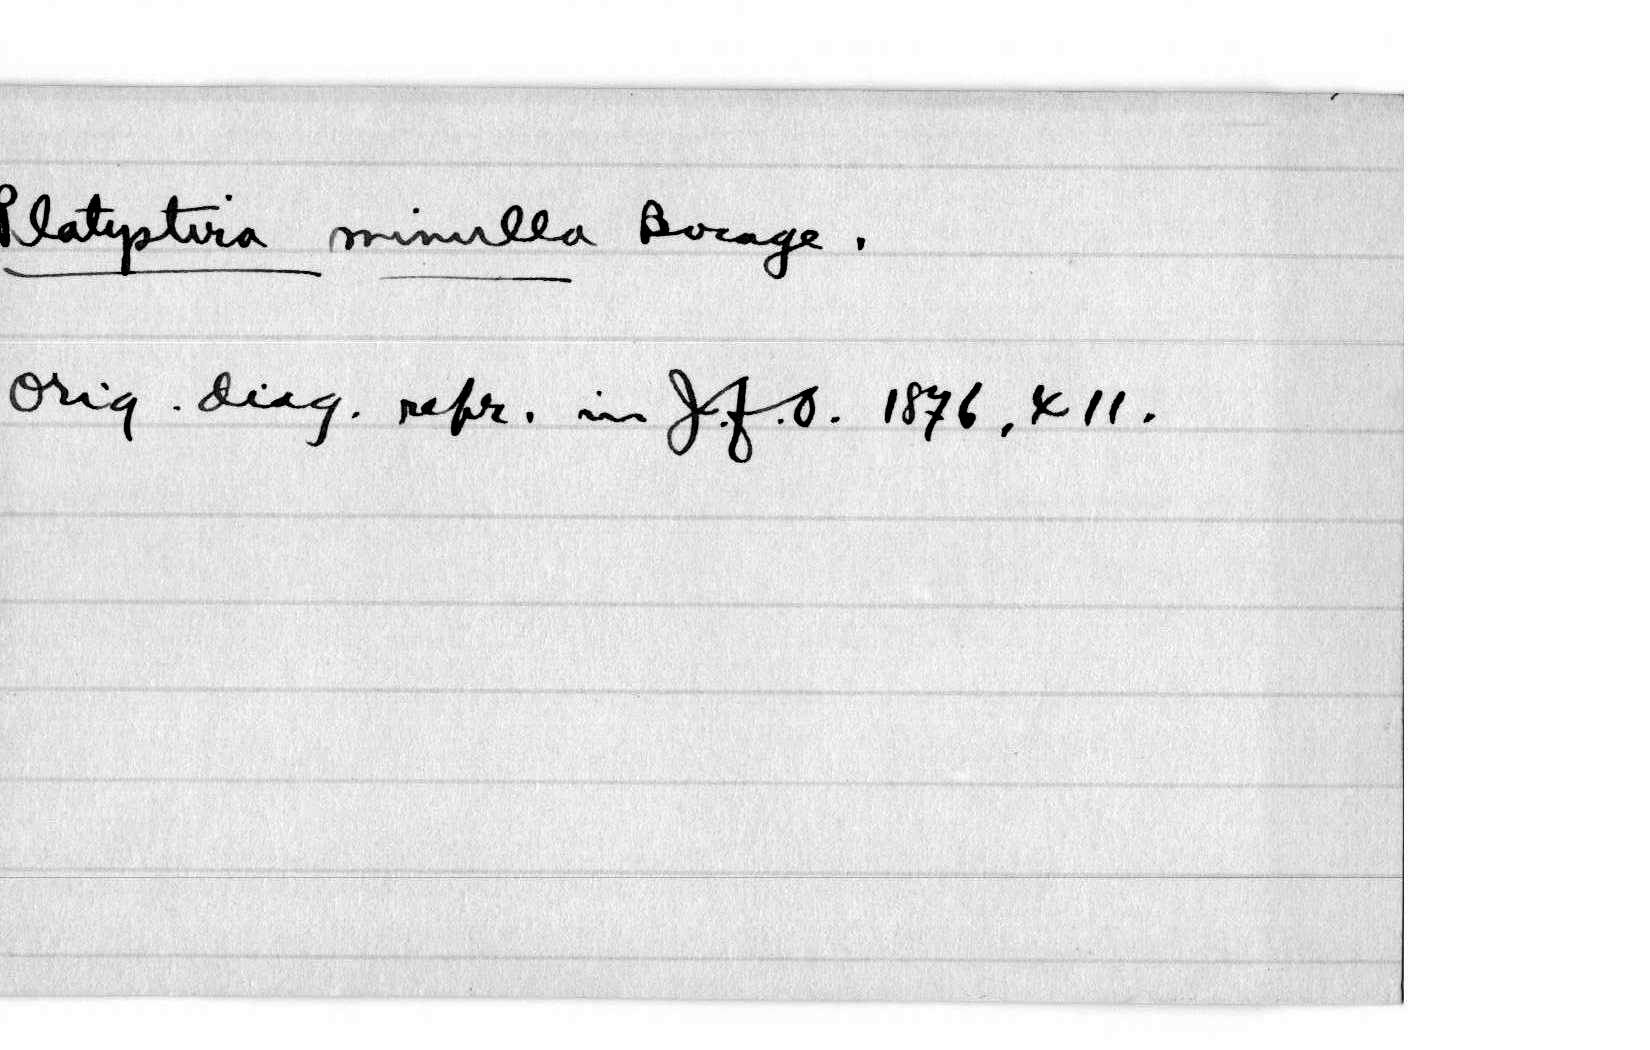 Platystira minulla Bocage.
Orig. diag. repr. in J.f.O. 1876, 411.